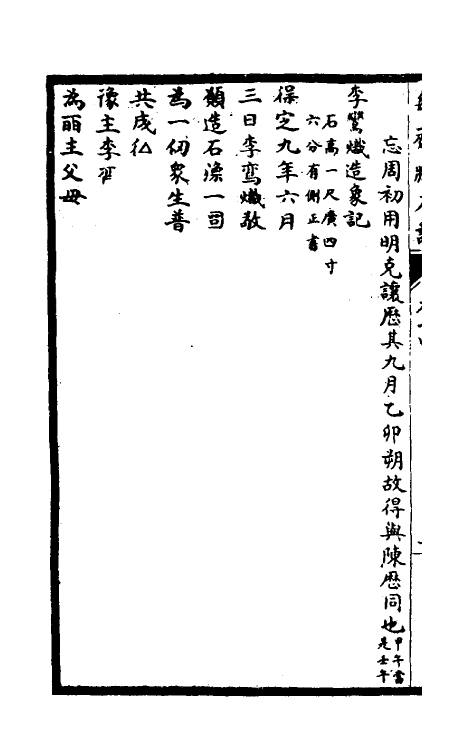 忘周初用明克讓歷其九月乙卯朔故得與陳歷同也甲午當是壬午
李鸞熾造象記
石高一尺廣四寸
六分有側正書
保定九年六月
三日李鸾熾敬
顀造石𤅢一㞾
為一切衆生普
共成仏
像主李
為丽主父母